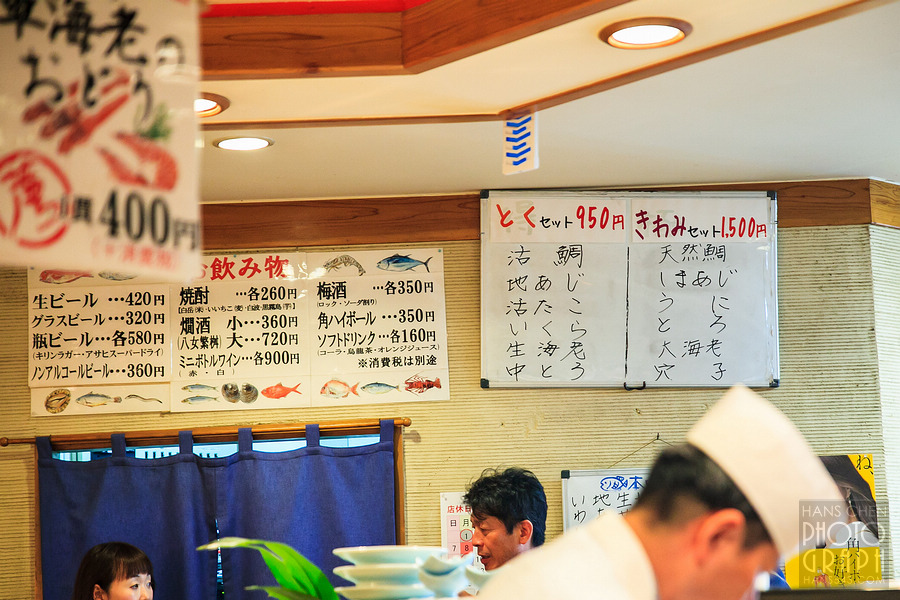 海老の
おどり
1貫 400円
お飲み物
生ビール …420円
グラスビール …320円
瓶ビール …各580円
(キリンラガー・アサヒスーパードライ)
ノンアルコールビール …360円
焼酎 …各260円
燗酒 小…360円
(八女繁桝) 大…720円
ミニボトルワイン…各900円
(赤・白)
梅酒 …各350円
(ロック・ソーダ割り)
角ハイボール …350円
ソフトドリンク …各160円
(コーラ・烏龍茶・オレンジジュース)
※消費税は別途
とくセット950円
活鯛
地あじ
活たこ
いくら
生海老
中とろ
きわみセット1,500円
天然鯛
しまあじ
うに
とろ
大海老
穴子
店休日
本
地
ね、
角ハイ
お好
HANS CHEN
PHOTO
GRAPH